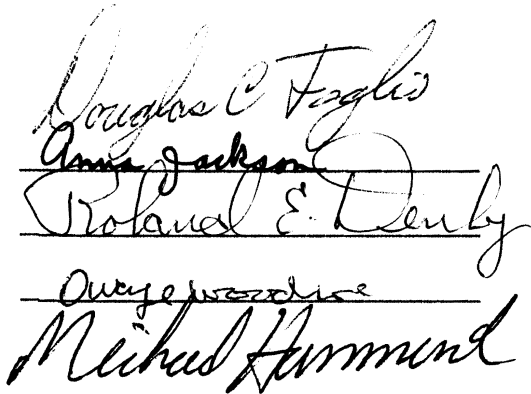 Douglas C Foglio
Anna Jackson
Roland E. Denby
Michael Hammond